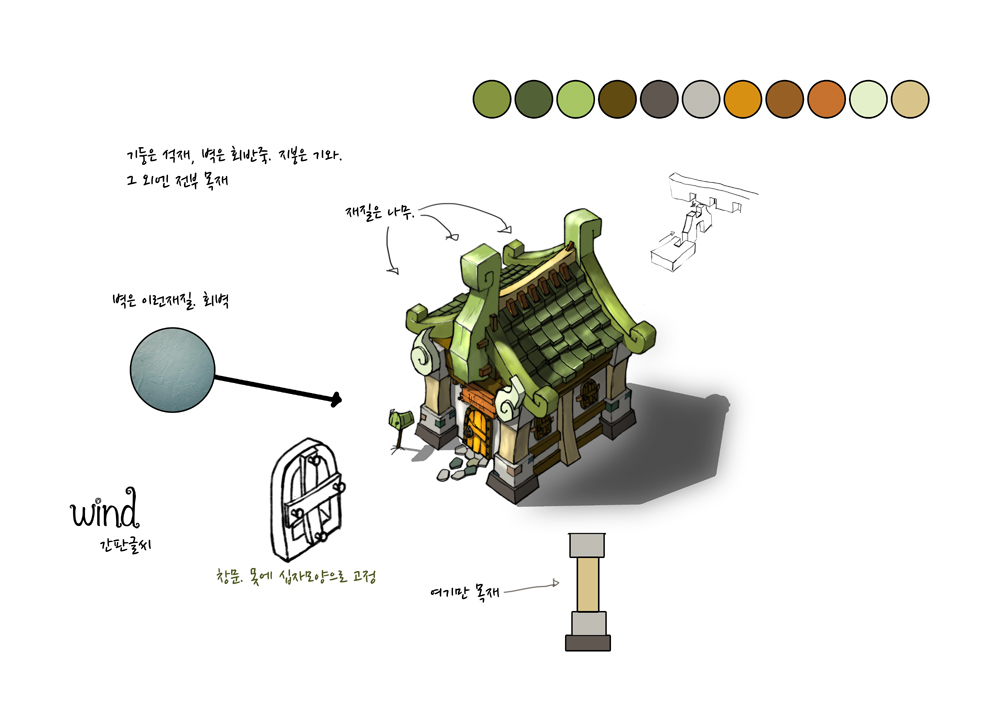 기둥은 석재, 벽은 회반죽. 지붕은 기와.
그 외엔 전부 목재
재질은 나무.
벽은 이런재질. 회벽
wind
간판글씨
창문. 못에 십자모양으로 고정
여기만 목재